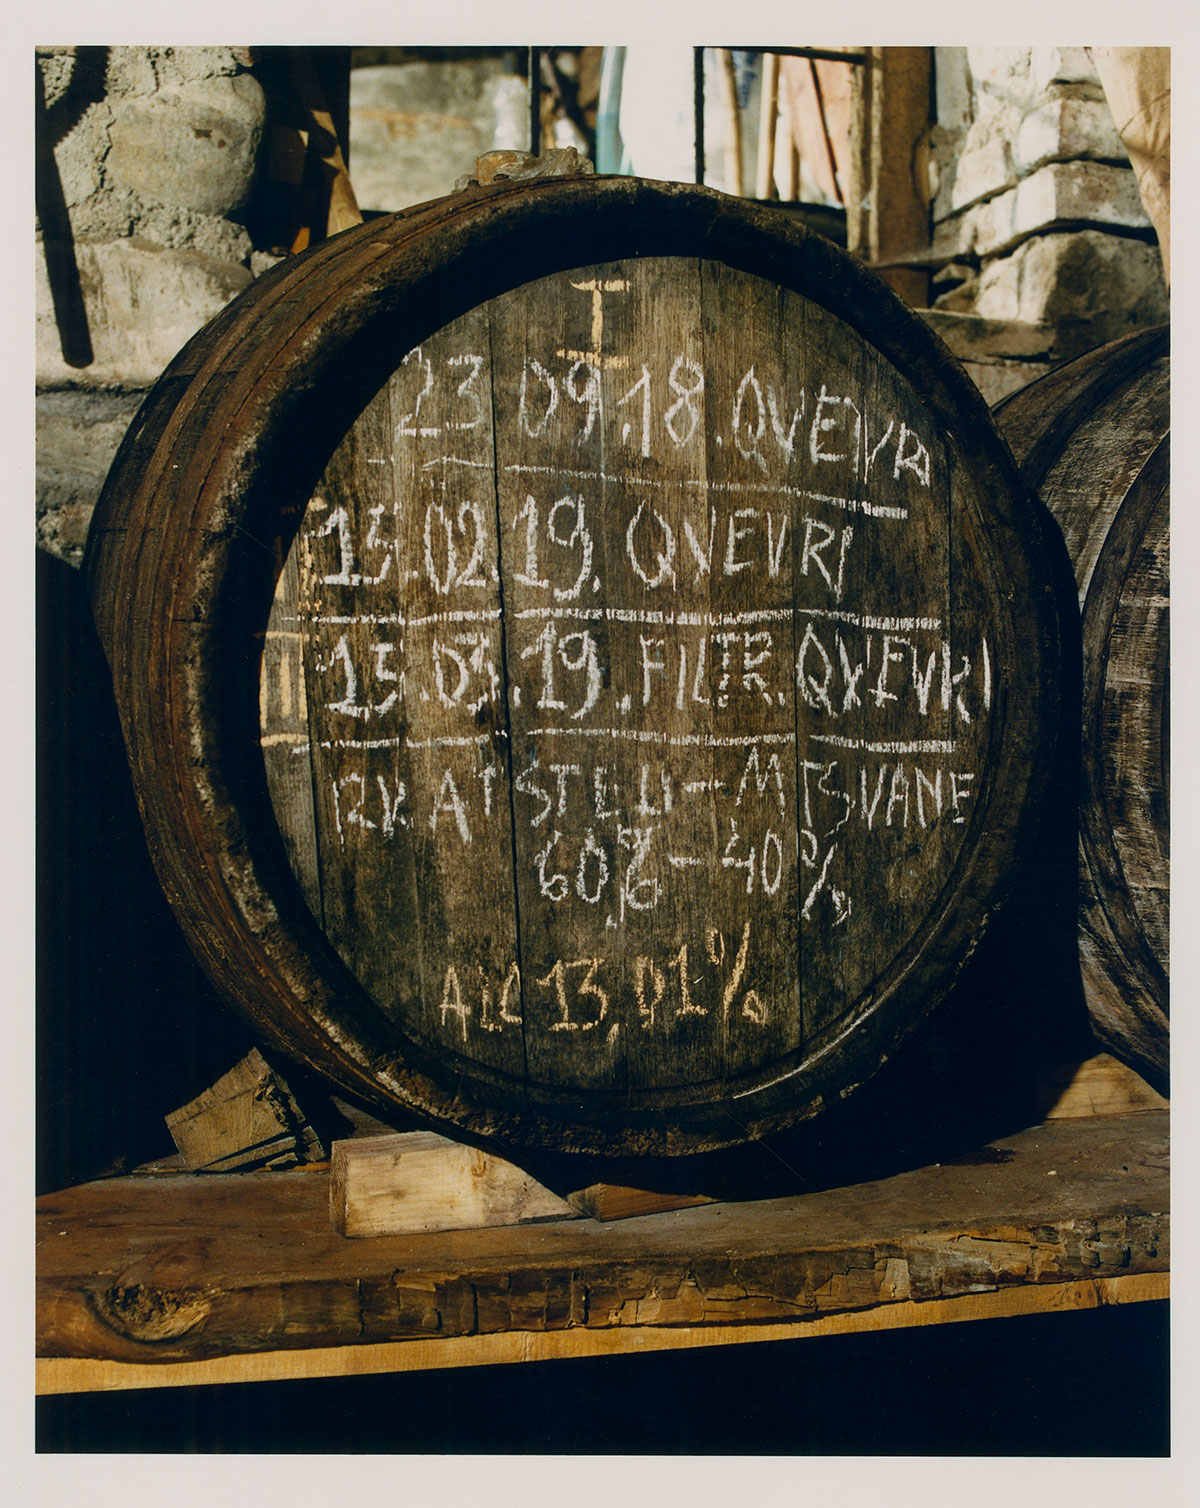 I
23.09.18. QVEVRI
15.02.19. QVEVRI
15.03.19. FILTR. QVEVRI
RKATSTELI - MTSVANE
60% - 40%
ALC 13,01%